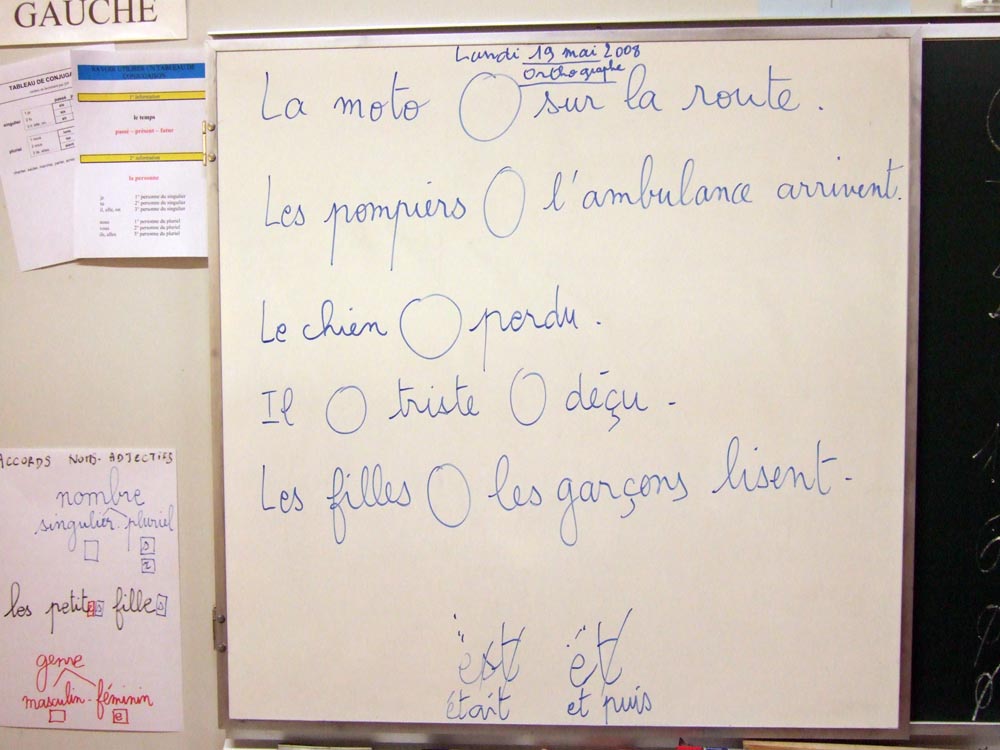 GAUCHE
TABLEAU DE CONJUGA
singulier
pluriel
1° information
le temps
passé - présent - futur
2° information
la personne
je 1° personne du singulier
tu 2° personne du singulier
il, elle, on 3° personne du singulier
nous 1° personne du pluriel
vous 2° personne du pluriel
ils, elles 3° personne du pluriel
Lundi 19 mai 2008
Orthographe
La moto sur la route.
Les pompiers l'ambulance arrivent.
Le chien perdu.
Il triste déçu.
Les filles les garçons lisent.
est et
était et puis
ACCORDS NOMS-ADJECTIFS
nombre
singulier pluriel
s
x
les petites filles
genre
masculin - féminin
e